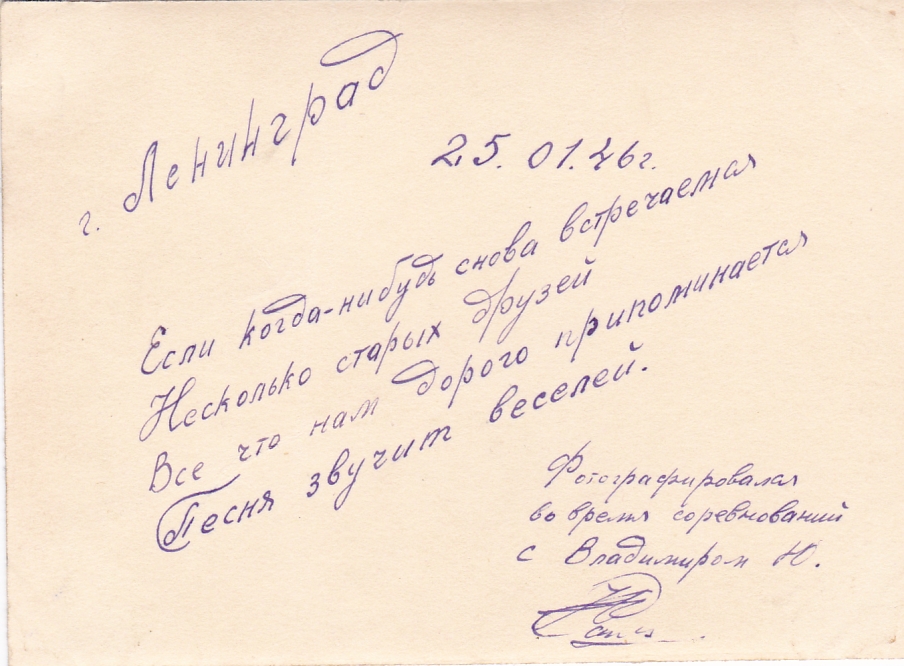 г. Ленинград
25. 01. 46г.
Если когда-нибудь снова встречаемся
Несколько старых друзей
Все что нам дорого припоминается
Песня звучит веселей.
Фотографировался
во время соревнований
с Владимиром Ю.